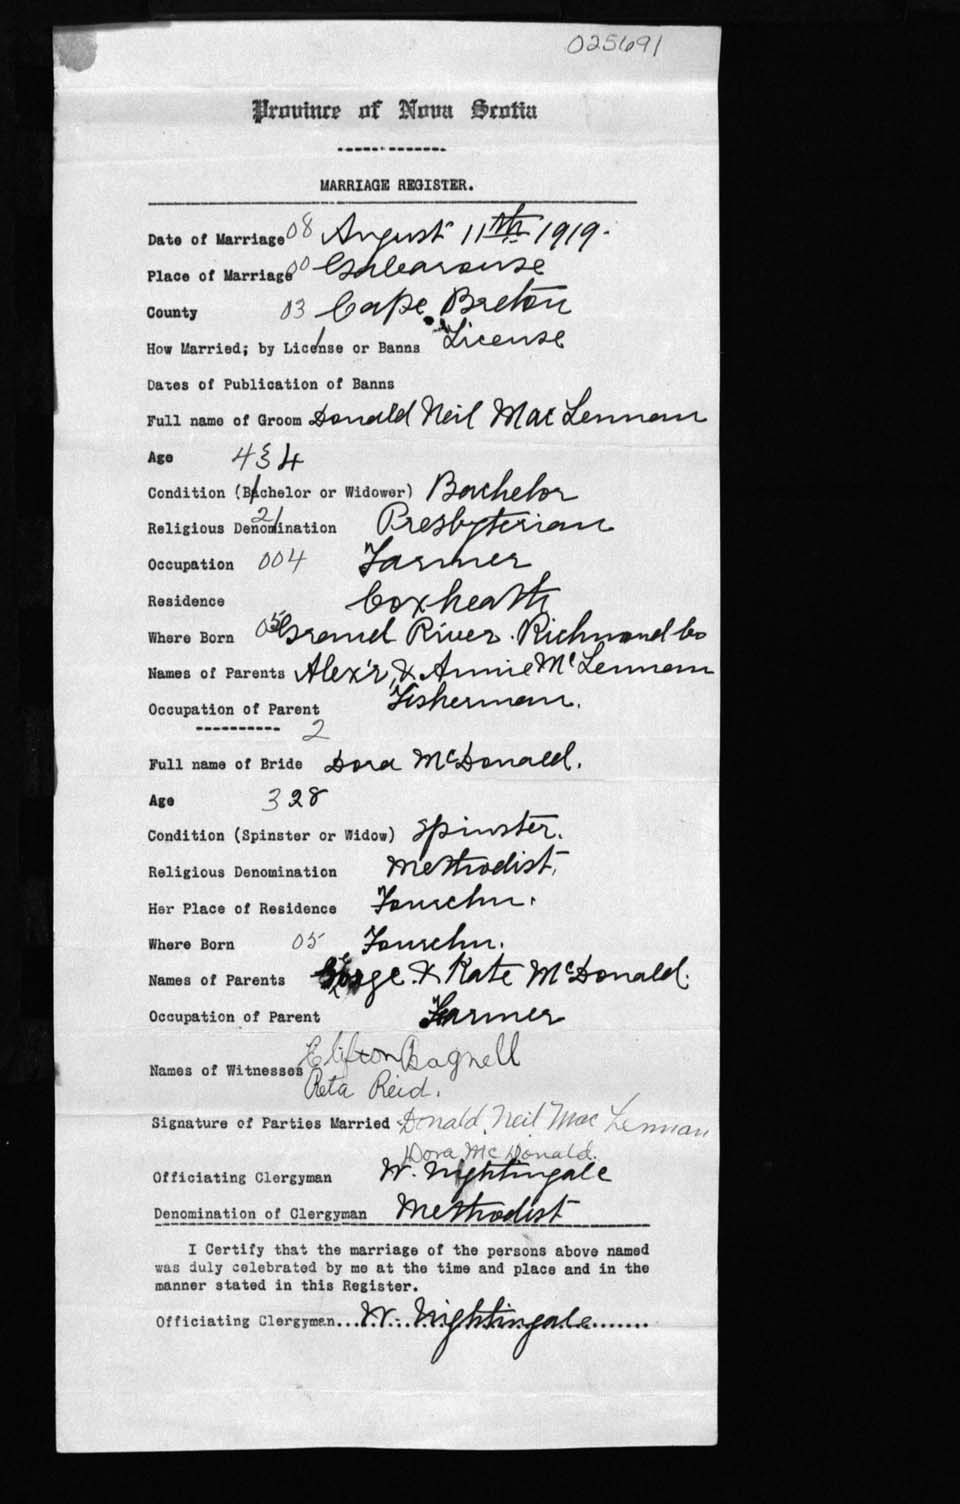 025691
Province of Nova Scotia
MARRIAGE REGISTER.
Date of Marriage 08 August 11th 1919.
Place of Marriage 00 Gabarouse
County 03 Cape Breton
How Married; by License or Banns License
Dates of Publication of Banns
Full name of Groom Donald Neil MacLennan
Age 4 34
Condition (Bachelor or Widower) Bachelor
Religious Denomination 21 Presbyterian
Occupation 004 Farmer
Residence Coxheath
Where Born 05 Grand River. Richmond Co
Names of Parents Alex'r, & Annie McLennan
Occupation of Parent Fisherman.
2
Full name of Bride Dora McDonald.
Age 3 28
Condition (Spinster or Widow) Spinster.
Religious Denomination Methodist,
Her Place of Residence Fourchu.
Where Born 05 Fourchu.
Names of Parents George & Kate McDonald.
Occupation of Parent Farmer
Names of Witnesses Clifton Bagnell
Reta Reid.
Signature of Parties Married Donald Neil MacLennan
Dora McDonald.
Officiating Clergyman W. Nightingale
Denomination of Clergyman Methodist
I Certify that the marriage of the persons above named
was duly celebrated by me at the time and place and in the
manner stated in this Register.
Officiating Clergyman...W. Nightingale.......